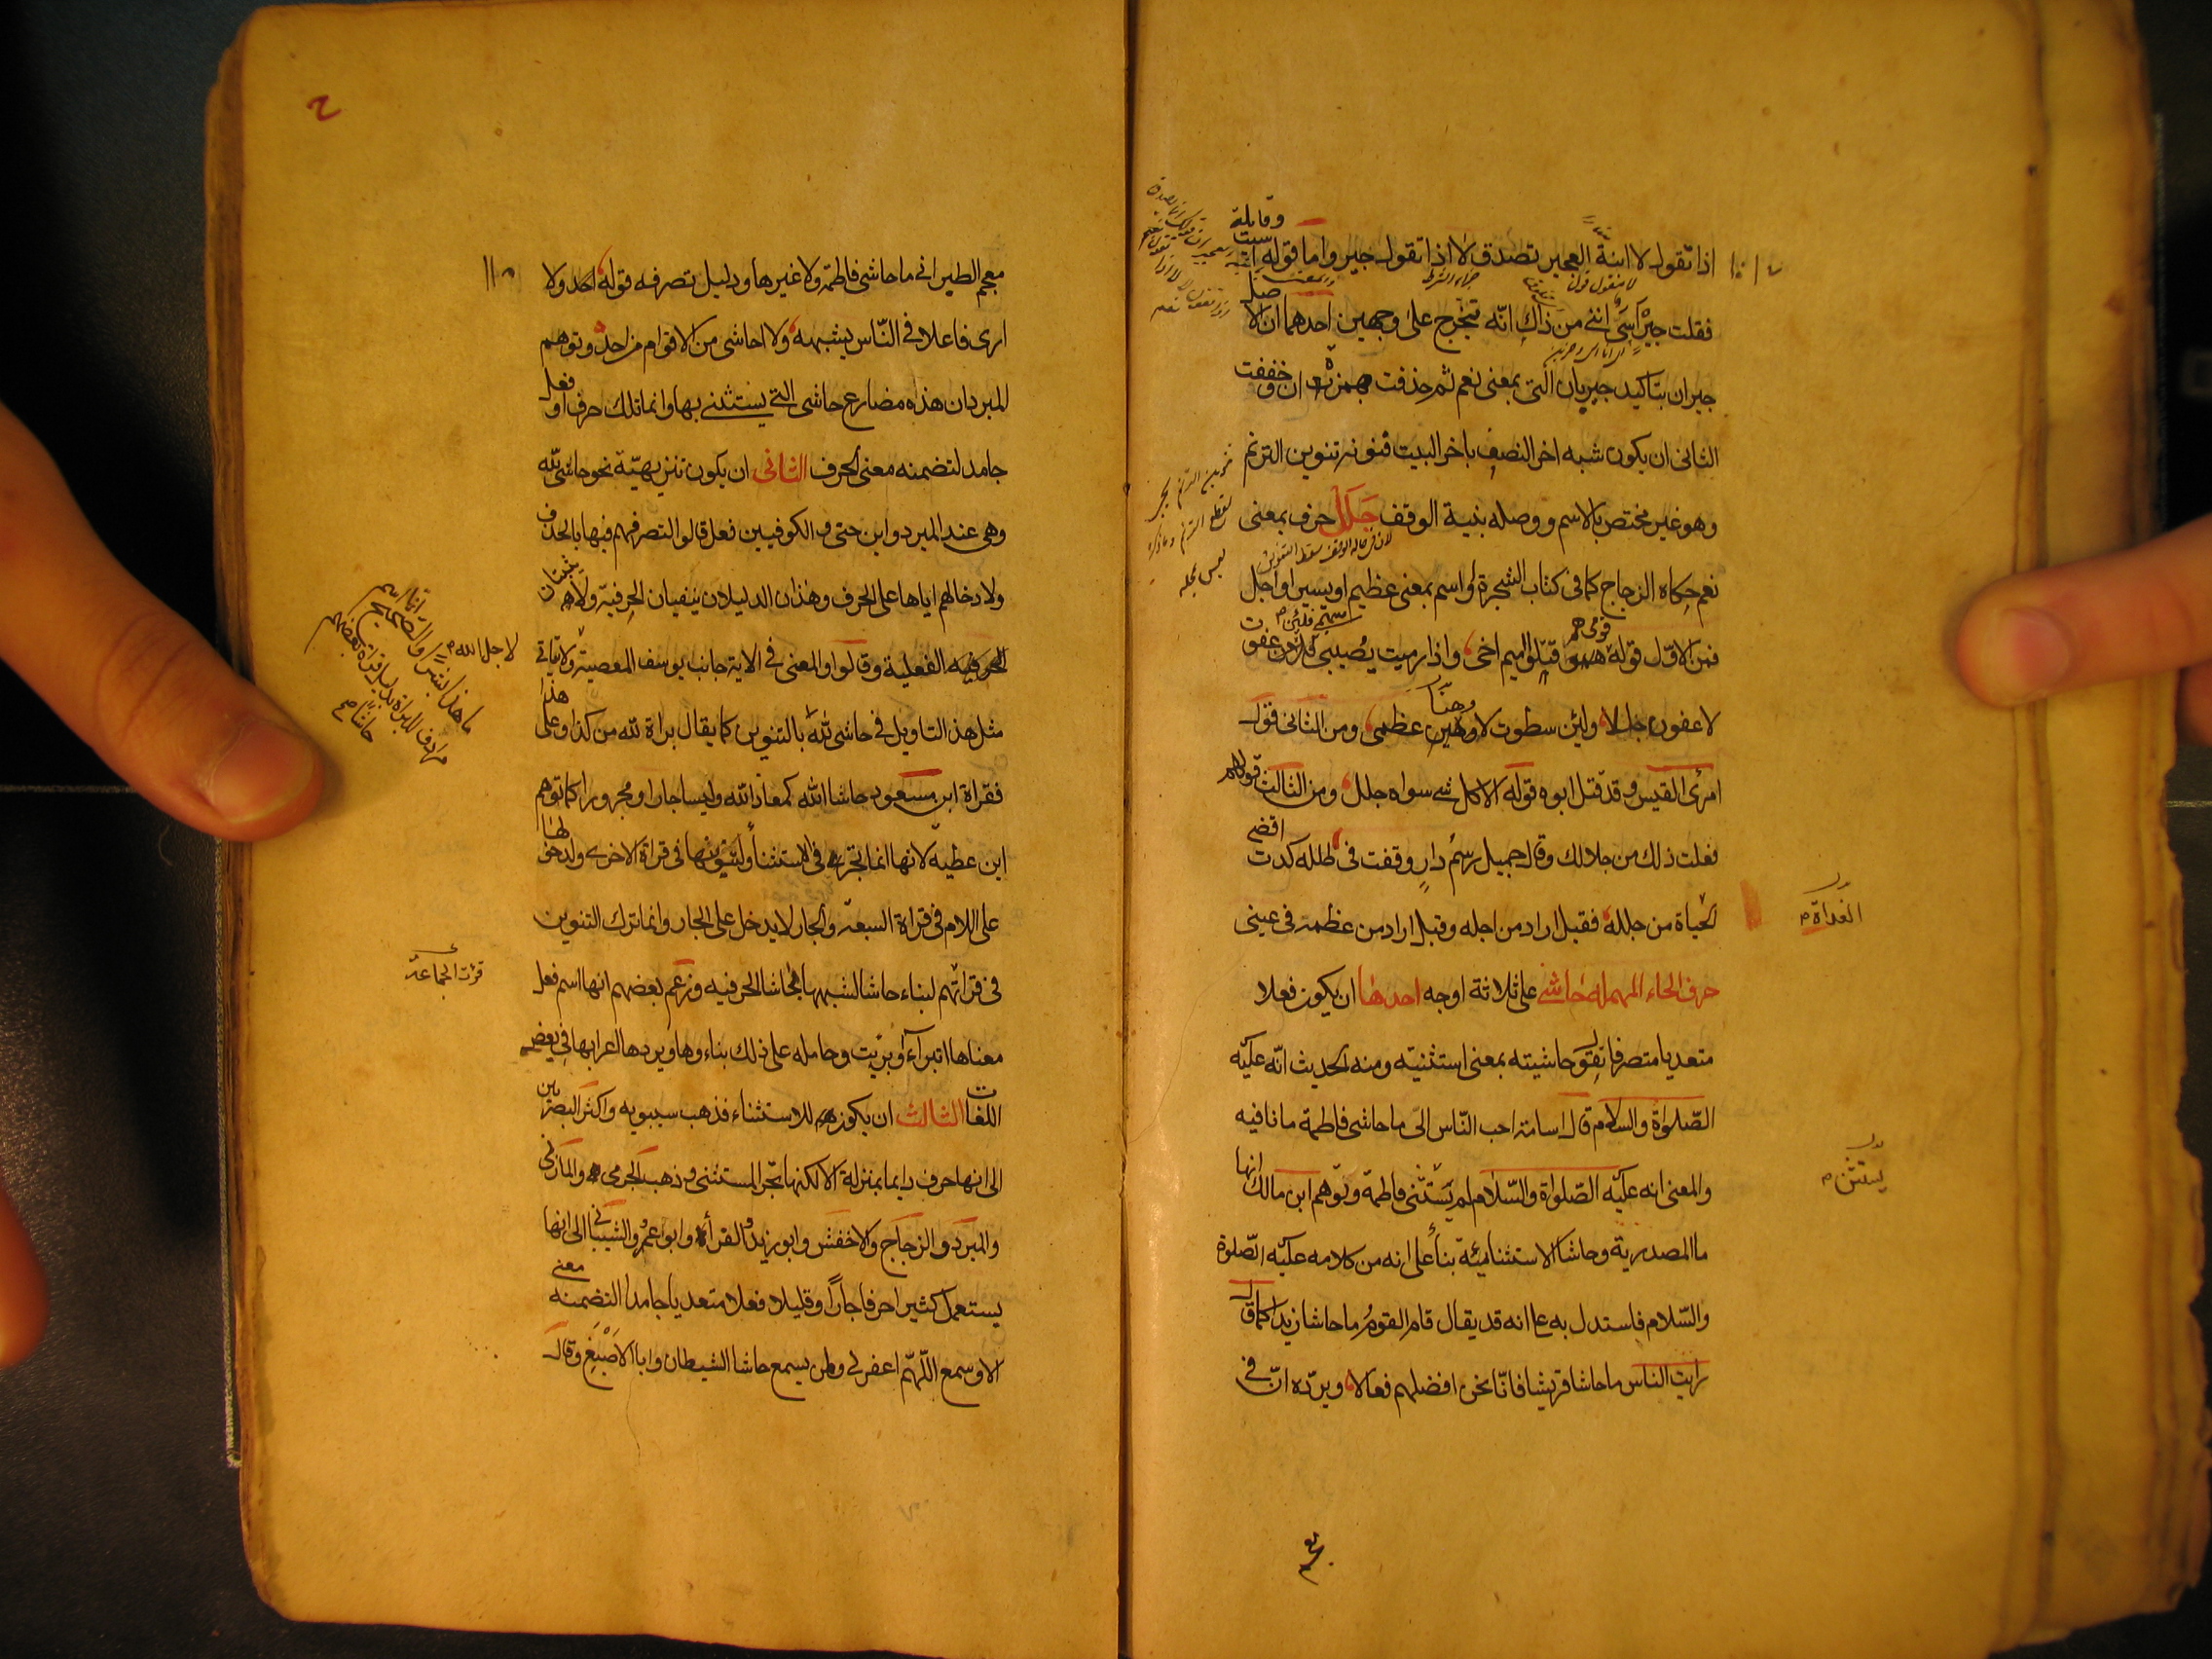 وقايلة
اذا تقول لا ابنة العجير تصدق لا اذا تقول جير واما قوله
فقلت جير اسى انني من ذاك انه تتخرج على وجهين احدهما ان الاصل
جير ان بتاكيد جير بان التى بمعنى نعم ثم حذفت همزة ان وخففت
الثانى ان يكون شبه اخر النصف باخر البيت فنونه تنوين الترنم
وهو غير مختص بالاسم ووصله بنية الوقف جلل حرف بمعنى
نعم حكاه الزجاج كما فى كتاب الشجرة او اسم بمعنى عظيم او يسير او اجل
فمن الاول قوله قومى هم قتلوا اميم اخى واذا رميت يصيبنى سهمى فلئن عفوت
لاعفون جللا ولئن سطوت لاوهنن عظمى ومن الثانى قول
امرئ القيس وقد قتل ابوه قوله الا كل شى سواه جلل ومن الثالث قولهم
فعلت ذلك من جلالك وقال جميل رسم دار وقفت فى طلله كدت اقضى
الحياة من جلله فقيل اراد من اجله وقيل اراد من عظمه فى عينى
الغداة
حرف الحاء المهملة حاشى على ثلاثة اوجه احدها ان يكون فعلا
متعديا متصرفا تقول حاشيته بمعنى استثنيته ومنه الحديث انه عليه
الصلوة والسلام قال اسامة احب الناس الى ما حاشى فاطمة ما نافيه
والمعنى انه عليه الصلواة والسلام لم يستثنى فاطمة وتوهم ابن مالك انها
يستثن
ما المصدرية وحاشا الاستثنائية بناء على انه من كلامه عليه الصلوة
والسلام فاستدل به على انه قد يقال قام القوم ما حاشا زيدا كما قال
رايت الناس ما حاشا قريشا فانا نحن افضلهم فعالا ويرده ان فى
معجم الطبرانى ما حاشى فاطمة ولا غيرها ودليل تصرفه قوله احد ولا
ارى فاعلا فى الناس يشبهه ولا احاشى من الاقوام من احد وتوهم
المبرد ان هذا مضارع حاشى التي يستثنى بها وانما تلك حرف او فعل
جامد لتضمنه معنى الحرف الثانى ان يكون تنزيهية نحو حاشى لله
وهى عند المبرد وابن جنى والكوفيين فعل قالوا لتصرفهم فيها بالحذف
ولادخالهم اياها على الحرف وهذان الدليلان ينفيان الحرفية ولا يثبتان
الفعلية وقالوا والمعنى فى الاية جانب يوسف المعصية ولا يتاتى
لاجل الله
مثل هذا التاويل فى حاشى لله بالتنوين كما يقال براة لله من كذا وعلى هذا
فقراة ابن مسعود حاشا الله كمعاذ الله وليسا جارا ومجرورا كما توهم
ابن عطية لانها انما تجر فى الاستثناء ولتنوينها فى قراة الاخرى ولدخولها
على اللام فى قراة السبعة والجار لا يدخل على الجار وانما ترك التنوين
فى قراتهم لبناء حاشا لشبهها بحاشا الحرفية وزعم بعضهم انها اسم فعل
معناها اتبرأ او بريت وحامله على ذلك بناءوها ويردها اعرابها فى بعض
اللغات الثالث ان يكون للاستثناء فذهب سيبويه واكثر البصريين
الى انها حرف دايما بمنزلة الا لكنها تجر المستثنى وذهب الجرمى والمازنى
والمبرد والزجاج والاخفش وابو زيد والفراء وابو عمرو الشيبانى الى انها
يستعمل كثيرا حرفا جارا وقليلا فعلا متعديا جامدا لتضمنه معنى
الا وسمع اللهم اغفر لى ولمن يسمع حاشا الشيطان وابا الاصبغ وقال